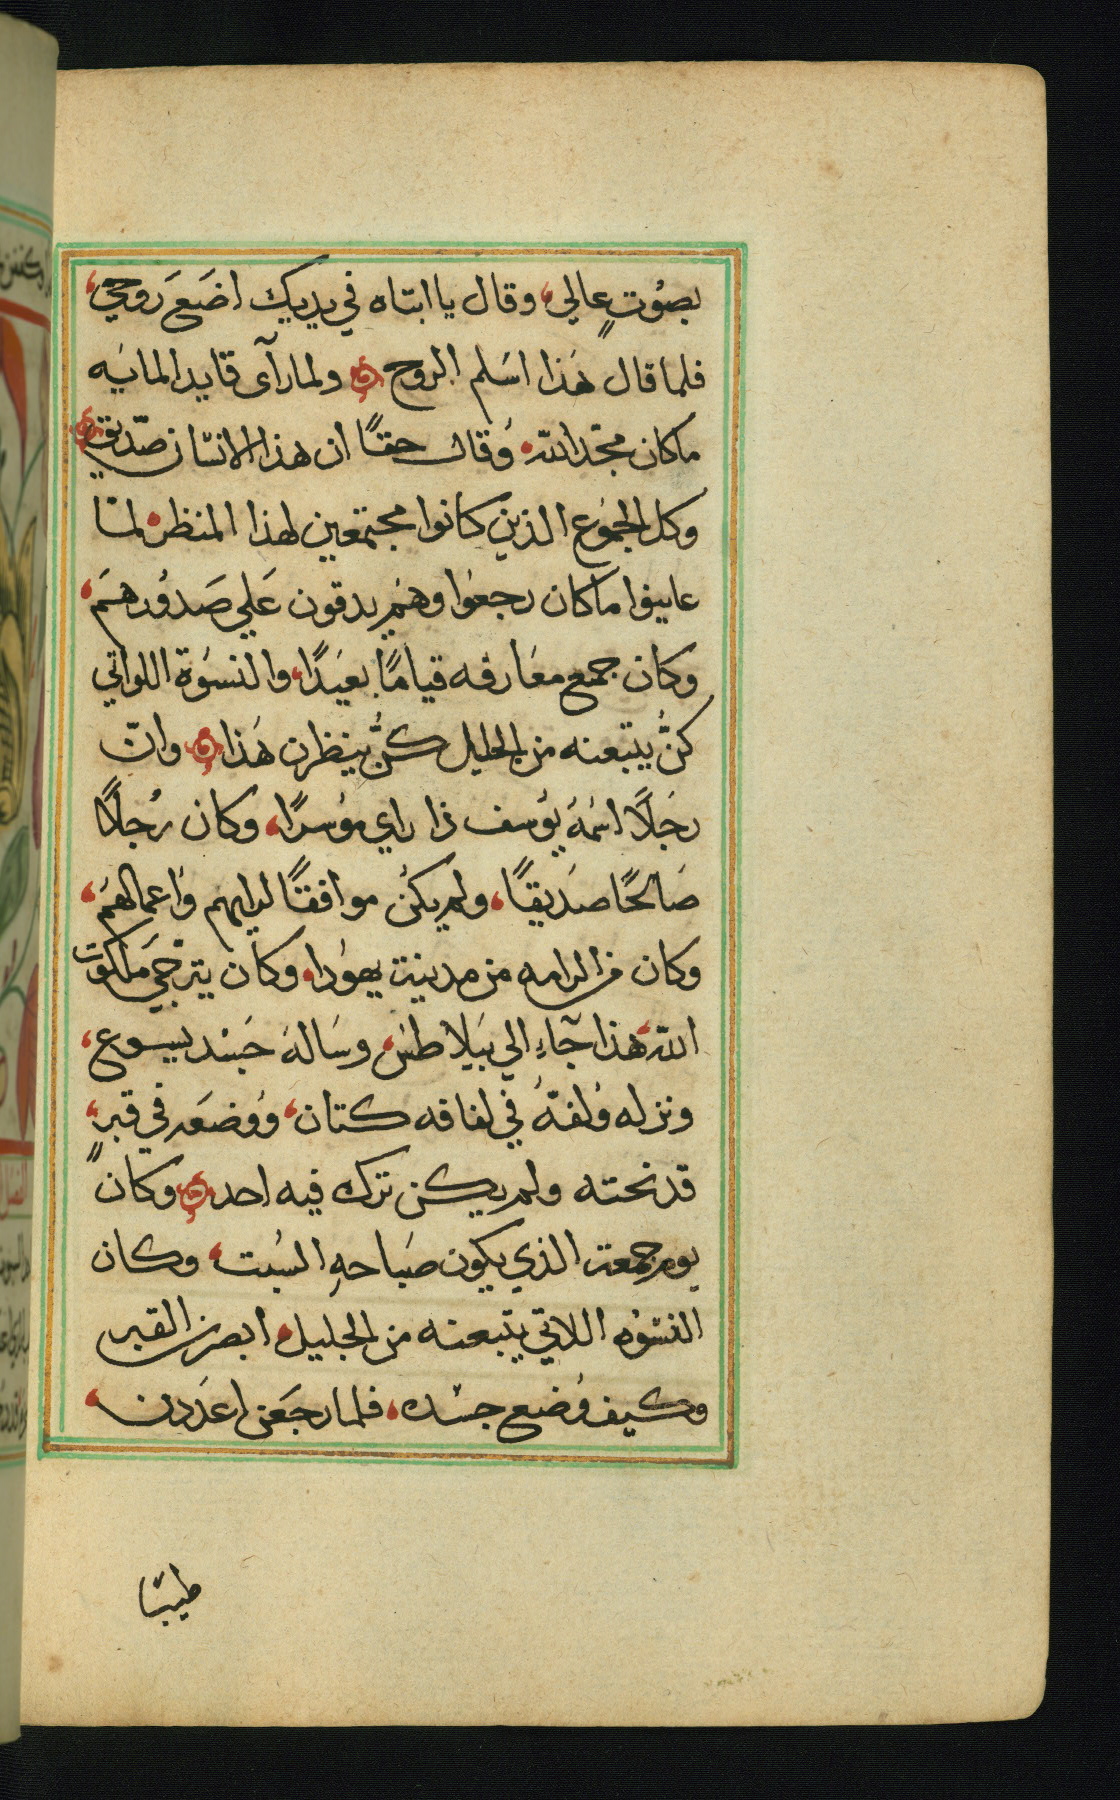 بصوت عالي، وقال يا ابتاه في يديك اضع روحي،
فلما قال هذا اسلم الروح ولما رآى قايد المايه
ما كان مجد الله، وقال حقًا ان هذا الانسان صدّيق
وكل الجموع الذين كانوا مجتمعين لهذا المنظر، لما
عاينوا ما كان رجعوا وهم يدقون علي صدورهم،
وكان جمع معارفه قيامًا بعيدًا، والنسوة اللواتي
كنَّ يتبعنه من الجليل كنَّ ينظرن هذا وانّ
رجلًا اسمه يوسف ذا راي موسرًا، وكان رجلًا
صالحًا صديقًا، ولم يكن موافقًا لرايهم واعمالهم،
وكان من الرامه من مدينة يهودا، وكان يترجي ملكوت
الله، هذا جآء الي بيلاطس، وساله جسد يسوع،
ونزله ولفهُ في لفافه كتان، ووضعه في قبرٍ،
قد نحته ولم يكن ترك فيه احد وكان
يوم جمعة الذي يكون صباحه السبت، وكان
النسوه اللاتي يتبعنه من الجليل، ابصرن القبر
وكيف وضع جسده، فلما رجعن اعددن،
طيبًا